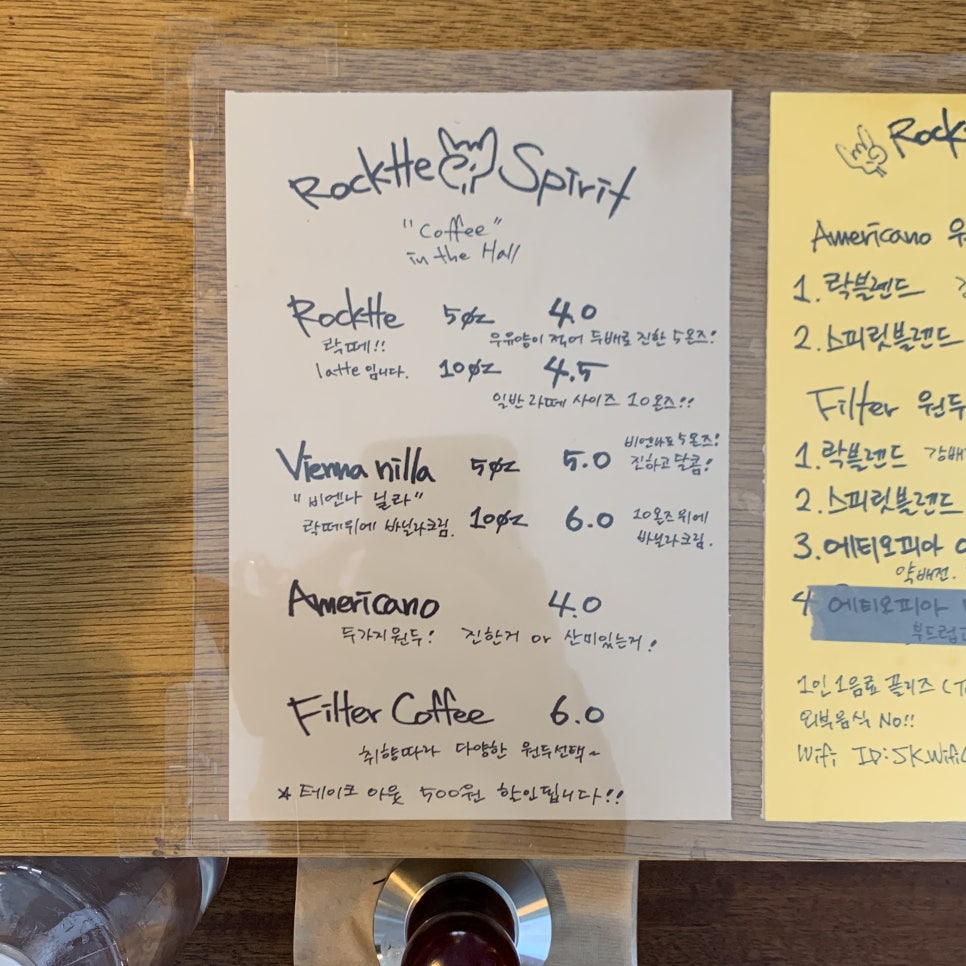 Rocktte Spirit
"Coffee"
in the Hall
Rocktte 5oz 4.0
락떼!! 우유양이 적어 두배로 진한 5온즈!
latte 입니다. 10oz 4.5
일반 라떼 사이즈 10온즈!!
Vienna nilla 5oz 5.0 비엔나도 5온즈! 진하고 달콤!
"비엔나 닐라"
락떼위에 바닐라크림. 10oz 6.0 10온즈 위에 바닐라크림.
Americano 4.0
두가지 원두! 진한거 or 산미있는거!
Filter Coffee 6.0
취향따라 다양한 원두선택~
* 테이크 아웃 500원 할인됩니다!!
Americano
1. 락블렌드
2. 스피릿블렌드
Filter 원두
1. 락블렌드 강배
2. 스피릿블렌드
3. 에티오피아
약배전.
4 에티오피아
부드럽고
1인 1음료 플리즈
외부음식 No!!
Wifi ID: SKWifi